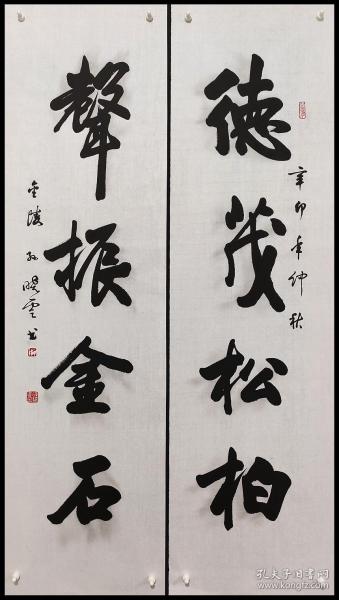 德茂松柏
辛卯年仲秋
聲振金石
金陵孙晓云书
孔夫子旧书网
book.kongfz.com